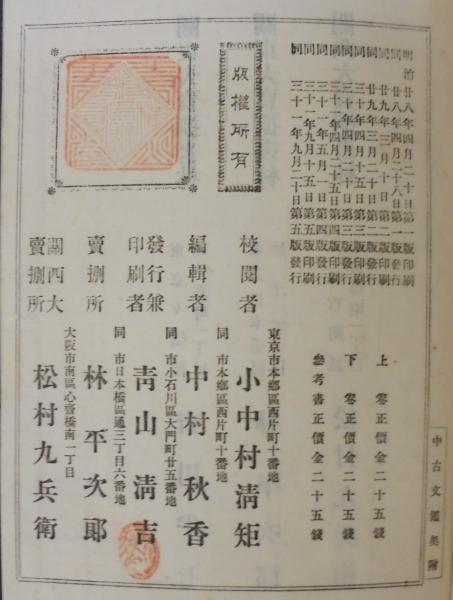 中古文鑑奧附
明治廿八年四月二十日第一版印刷
同廿八年四月二十八日第一版發行
同廿九年三月十日第二版印刷
同廿九年三月二十日第二版發行
同三十年四月十五日第三版印刷
同三十年四月二十日第三版發行
同三十一年四月十五日第四版印刷
同三十一年五月
同三十一年九月十五日第五版印刷
同三十一年九月二十日第五版發行
上 零正價金二十五錢
下 零正價金二十五錢
參考書正價金二十五錢
版權所有
東京市本鄉區西片町十番地
校閱者 小中村淸矩
同 市本鄉區西片町十番地
編輯者 中村秋香
同 市小石川區大門町廿五番地
發行兼印刷者 靑山淸吉
同 市日本橋區通三丁目六番地
賣捌所 林平次郞
大阪市南區心齋橋南一丁目
關西大賣捌所 松村九兵衞